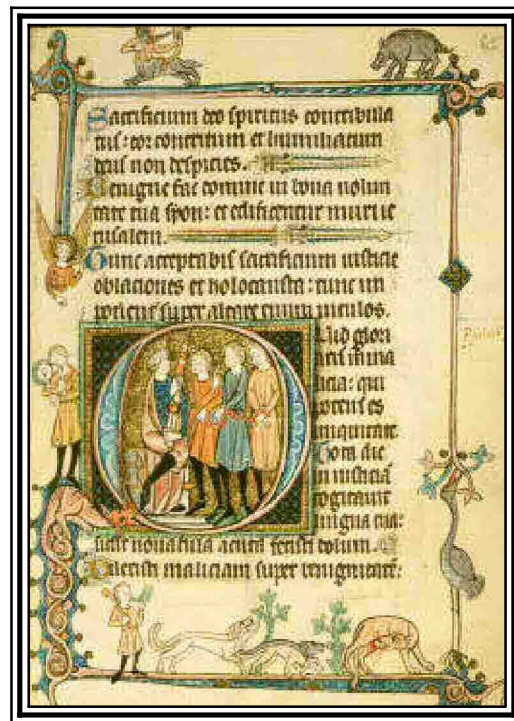 Sacrificium deo spiritus contribula
tus: cor contritum et humiliatum
deus non despicies.
Benigne fac domine in bona uolun
tate tua syon: et edificentur muri ie
rusalem.
Tunc acceptabis sacrificium iusticie
oblaciones et holocausta: tunc im
ponent super altare tuum uitulos.
Quid glori
aris in ma
licia: qui
potens es
iniquitate.
Tota die
iniusticiā
cogitauit
lingua tua:
sicut nouacula acuta fecisti dolum.
Dilexisti maliciam super benignitatē: